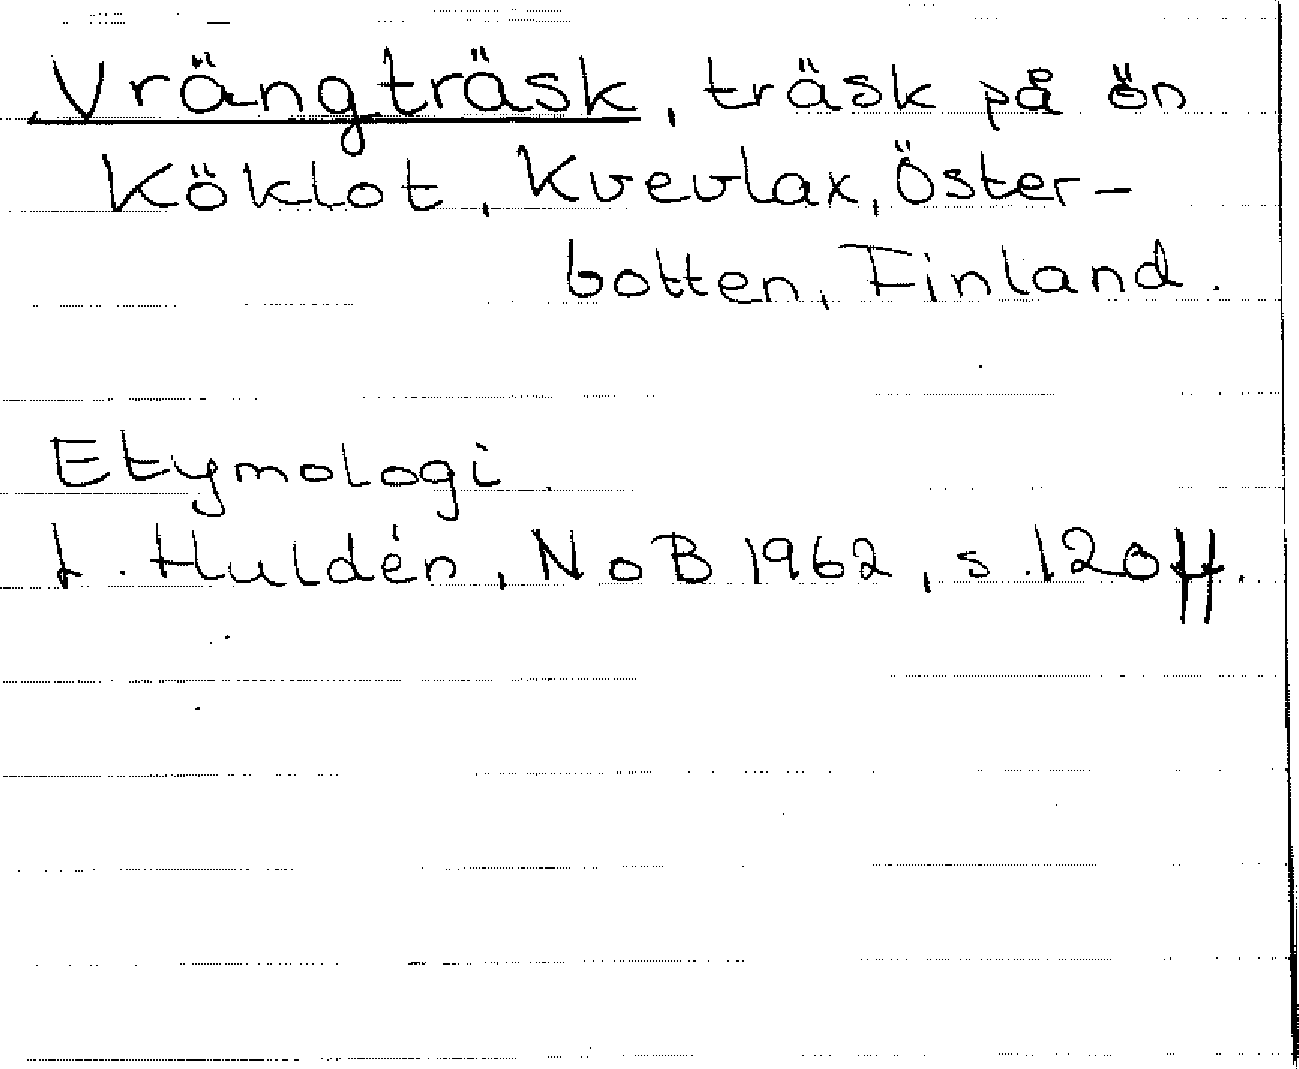 Vrängträsk, träsk på ön
Köklot, Kvevlax, Öster-
botten, Finland.
Etymologi
L. Huldén, NoB 1962, s. 120 ff.